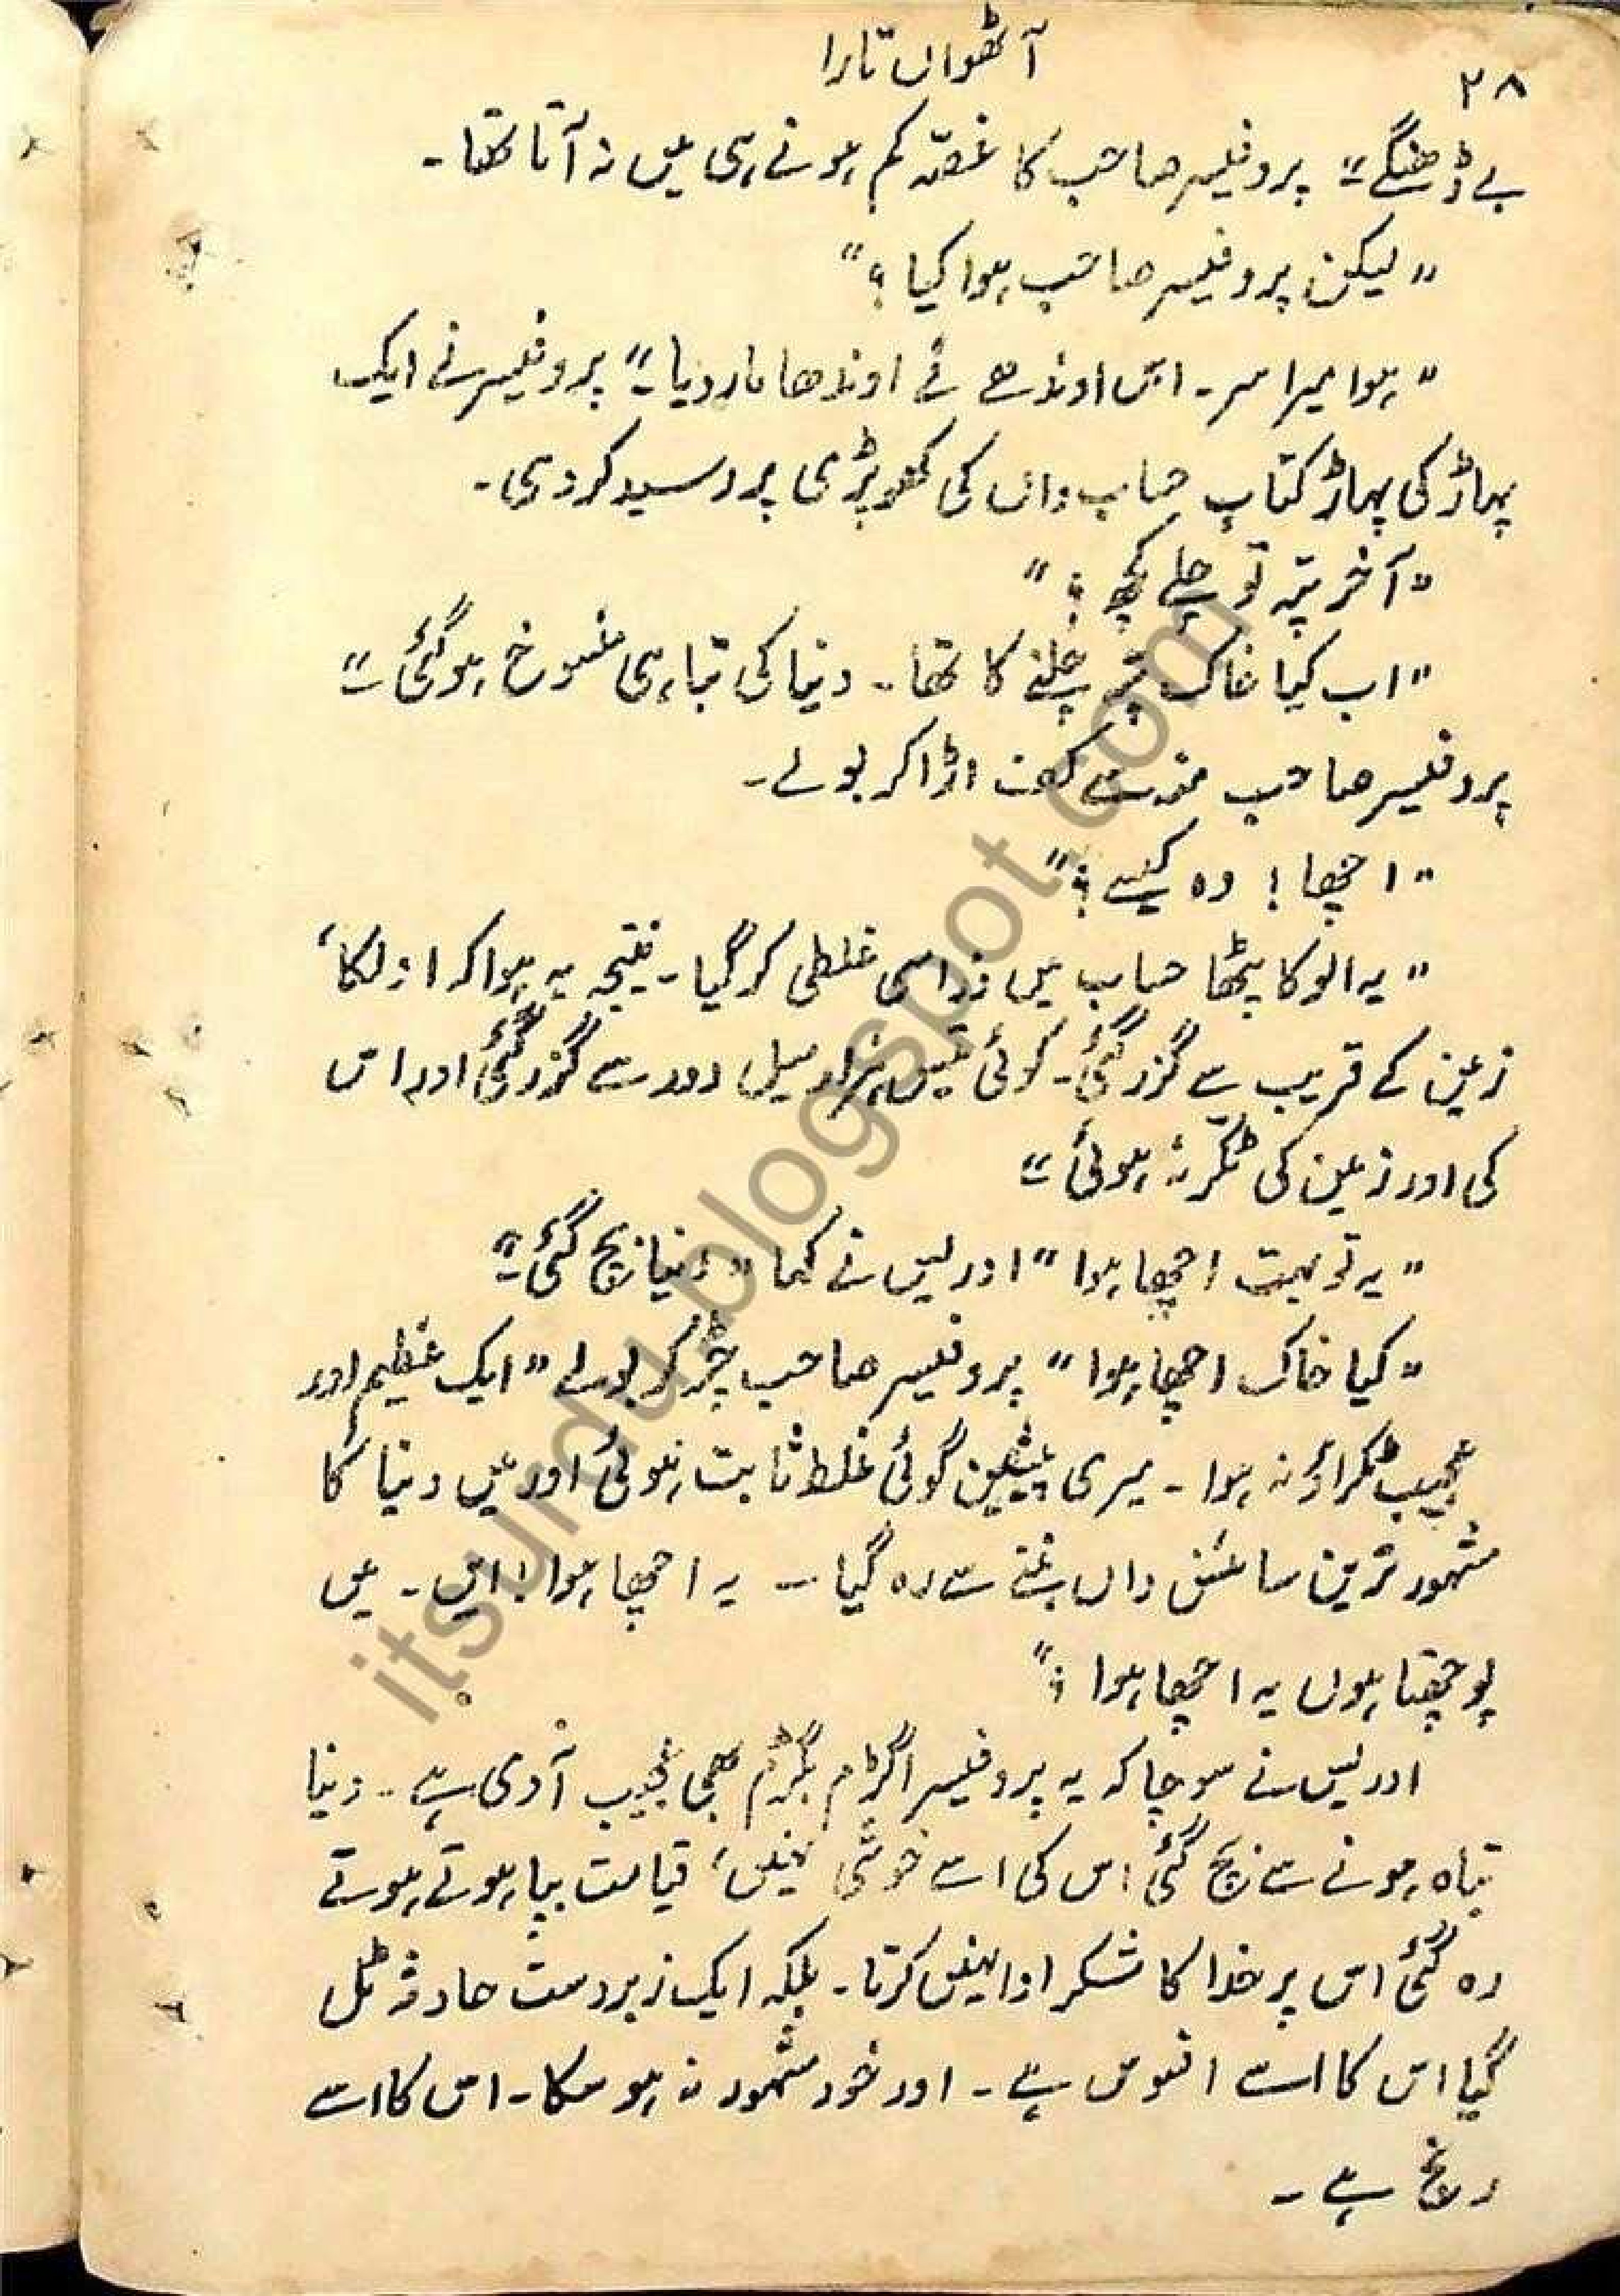 آٹھواں تارا
۲۸
بے ڈھنگے" پروفیسر صاحب کا غصّہ کم ہونے ہی میں نہ آتا تھا۔
"لیکن پروفیسر صاحب ہوا کیا؟"
"ہوا میرا سر۔ اس اوندھے نے اوندھا مار دیا۔" پروفیسر نے ایک
پہاڑ کی پہاڑ کتاب حساب داں کی کھوپڑی پر رسید کر دی۔
"آخر پتہ تو چلے کچھ؟"
"اب کیا خاک پتہ چلنے کا تھا۔ دنیا کی تباہی منسوخ ہو گئی۔"
پروفیسر صاحب منہ سے کف اڑا کر بولے۔
"اچھا! وہ کیسے؟"
"یہ الو کا پٹھا حساب میں ذرا سی غلطی کر گیا۔ نتیجہ یہ ہوا کہ ازلکا،
زمین کے قریب سے گزر گئی۔ کوئی تیس ہزار میل دور سے گزر گئی اور اس
کی اور زمین کی ٹکّر نہ ہوئی۔"
"یہ تو بہت اچھا ہوا" ادریس نے کہا "دنیا بچ گئی۔"
"کیا خاک اچھا ہوا" پروفیسر صاحب چڑ کر بولے "ایک عظیم اور
عجیب ٹکراؤ نہ ہوا۔ میری پیشین گوئی غلط ثابت ہوئی اور میں دنیا کا
مشہور ترین سائنس داں بننے سے رہ گیا۔۔ یہ اچھا ہوا! ایں۔ میں
پوچھتا ہوں یہ اچھا ہوا؟"
ادریس نے سوچا کہ یہ پروفیسر اگڑم بگڑم بھی عجیب آدمی ہے۔ دنیا
تباہ ہونے سے بچ گئی اس کی اسے خوشی نہیں، قیامت بپا ہوتے ہوتے
رہ گئی اس پر خدا کا شکر ادا نہیں کرتا۔ بلکہ ایک زبردست حادثہ ٹل
گیا اس کا اسے افسوس ہے۔ اور خود مشہور نہ ہو سکا۔ اس کا اسے
رنج ہے۔
itsurdu.blogspot.com